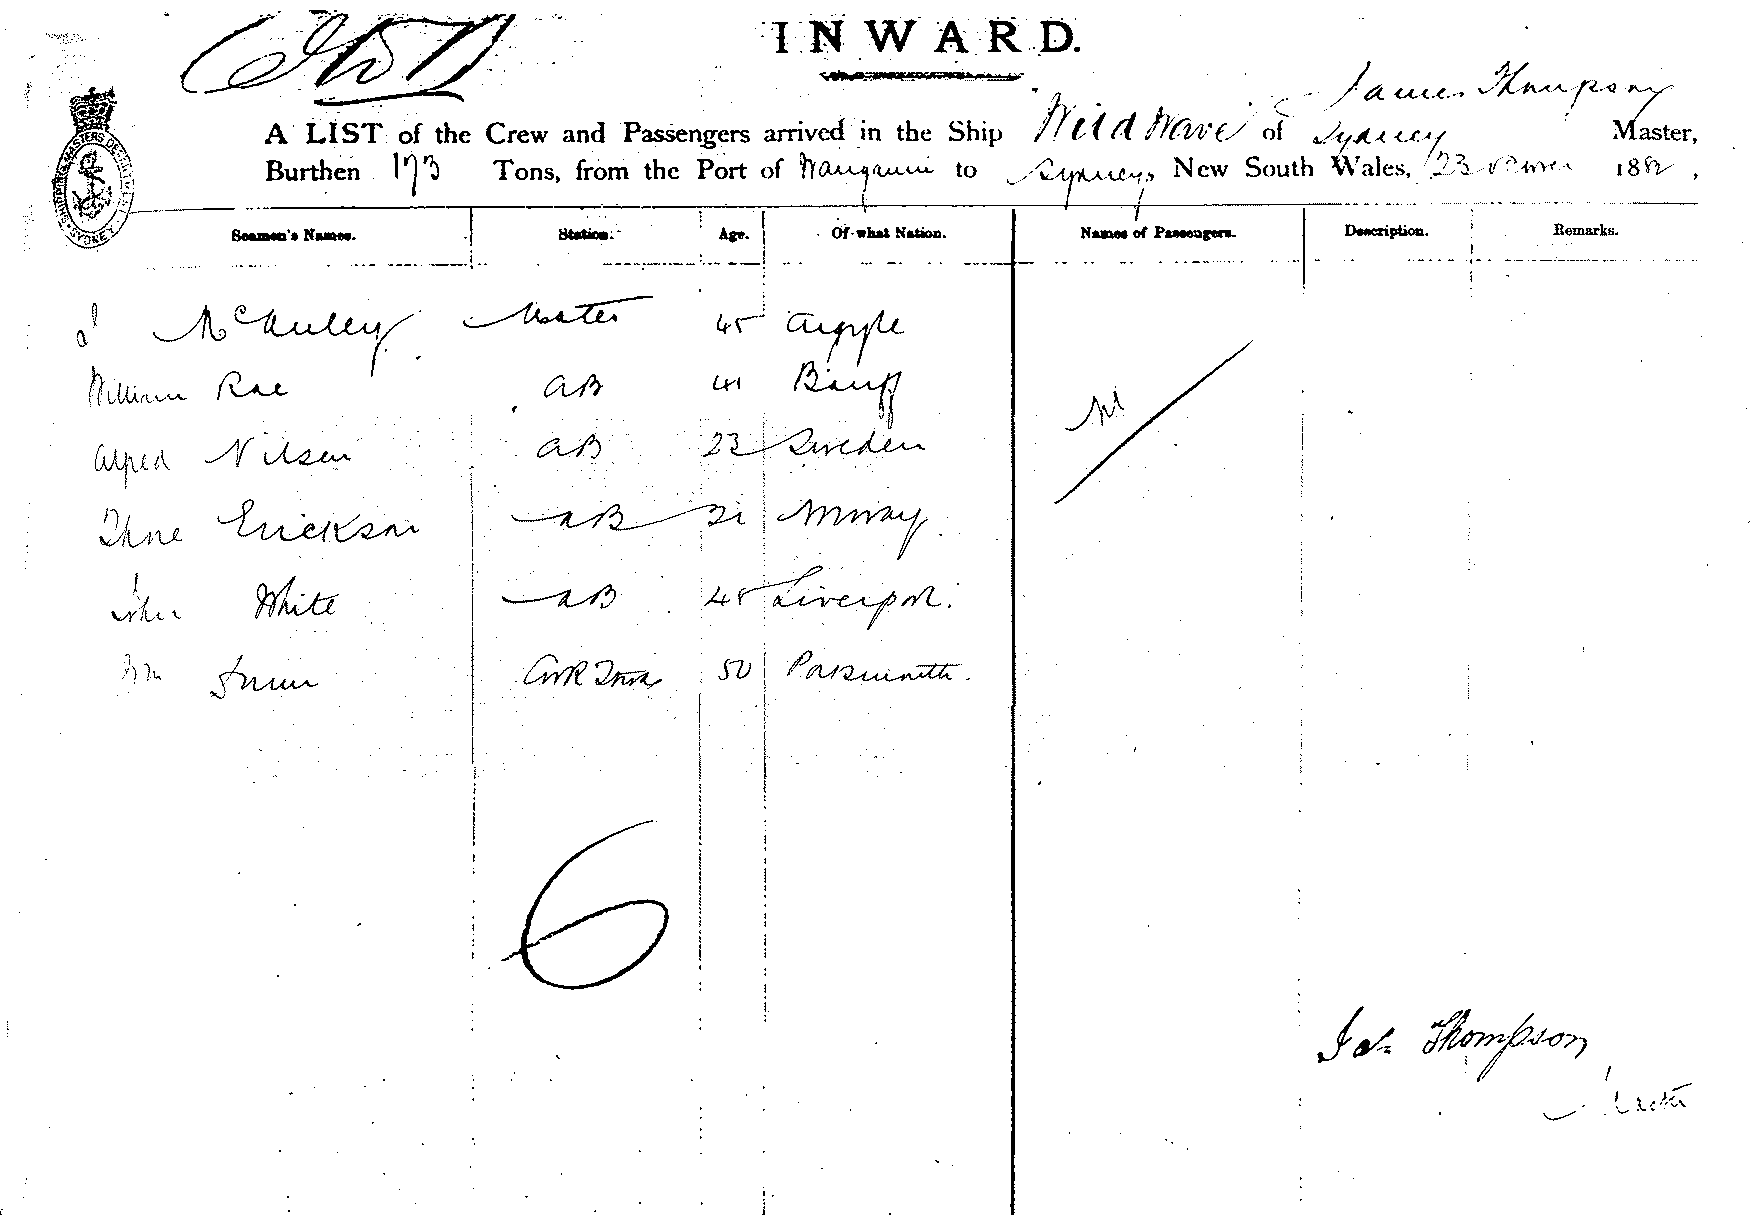 INWARD.
James Thompson
A LIST of the Crew and Passengers arrived in the Ship Wild Wave of Sydney Master,
Burthen 173 Tons, from the Port of Wanganui to Sydney, New South Wales, 23 188
SHIPPING MASTERS OFFICE SYDNEY
Seamen's Names. Station. Age. Of what Nation. Names of Passengers. Description. Remarks.
McAuley Mate 45 Argyle
William Rae AB 41 Banff
Nil
Alfred Nilsen AB 23 Sweden
Erickson AB Norway
John White AB 45 Liverpool.
Wm 50 Portsmouth.
6
Jas Thompson
Master